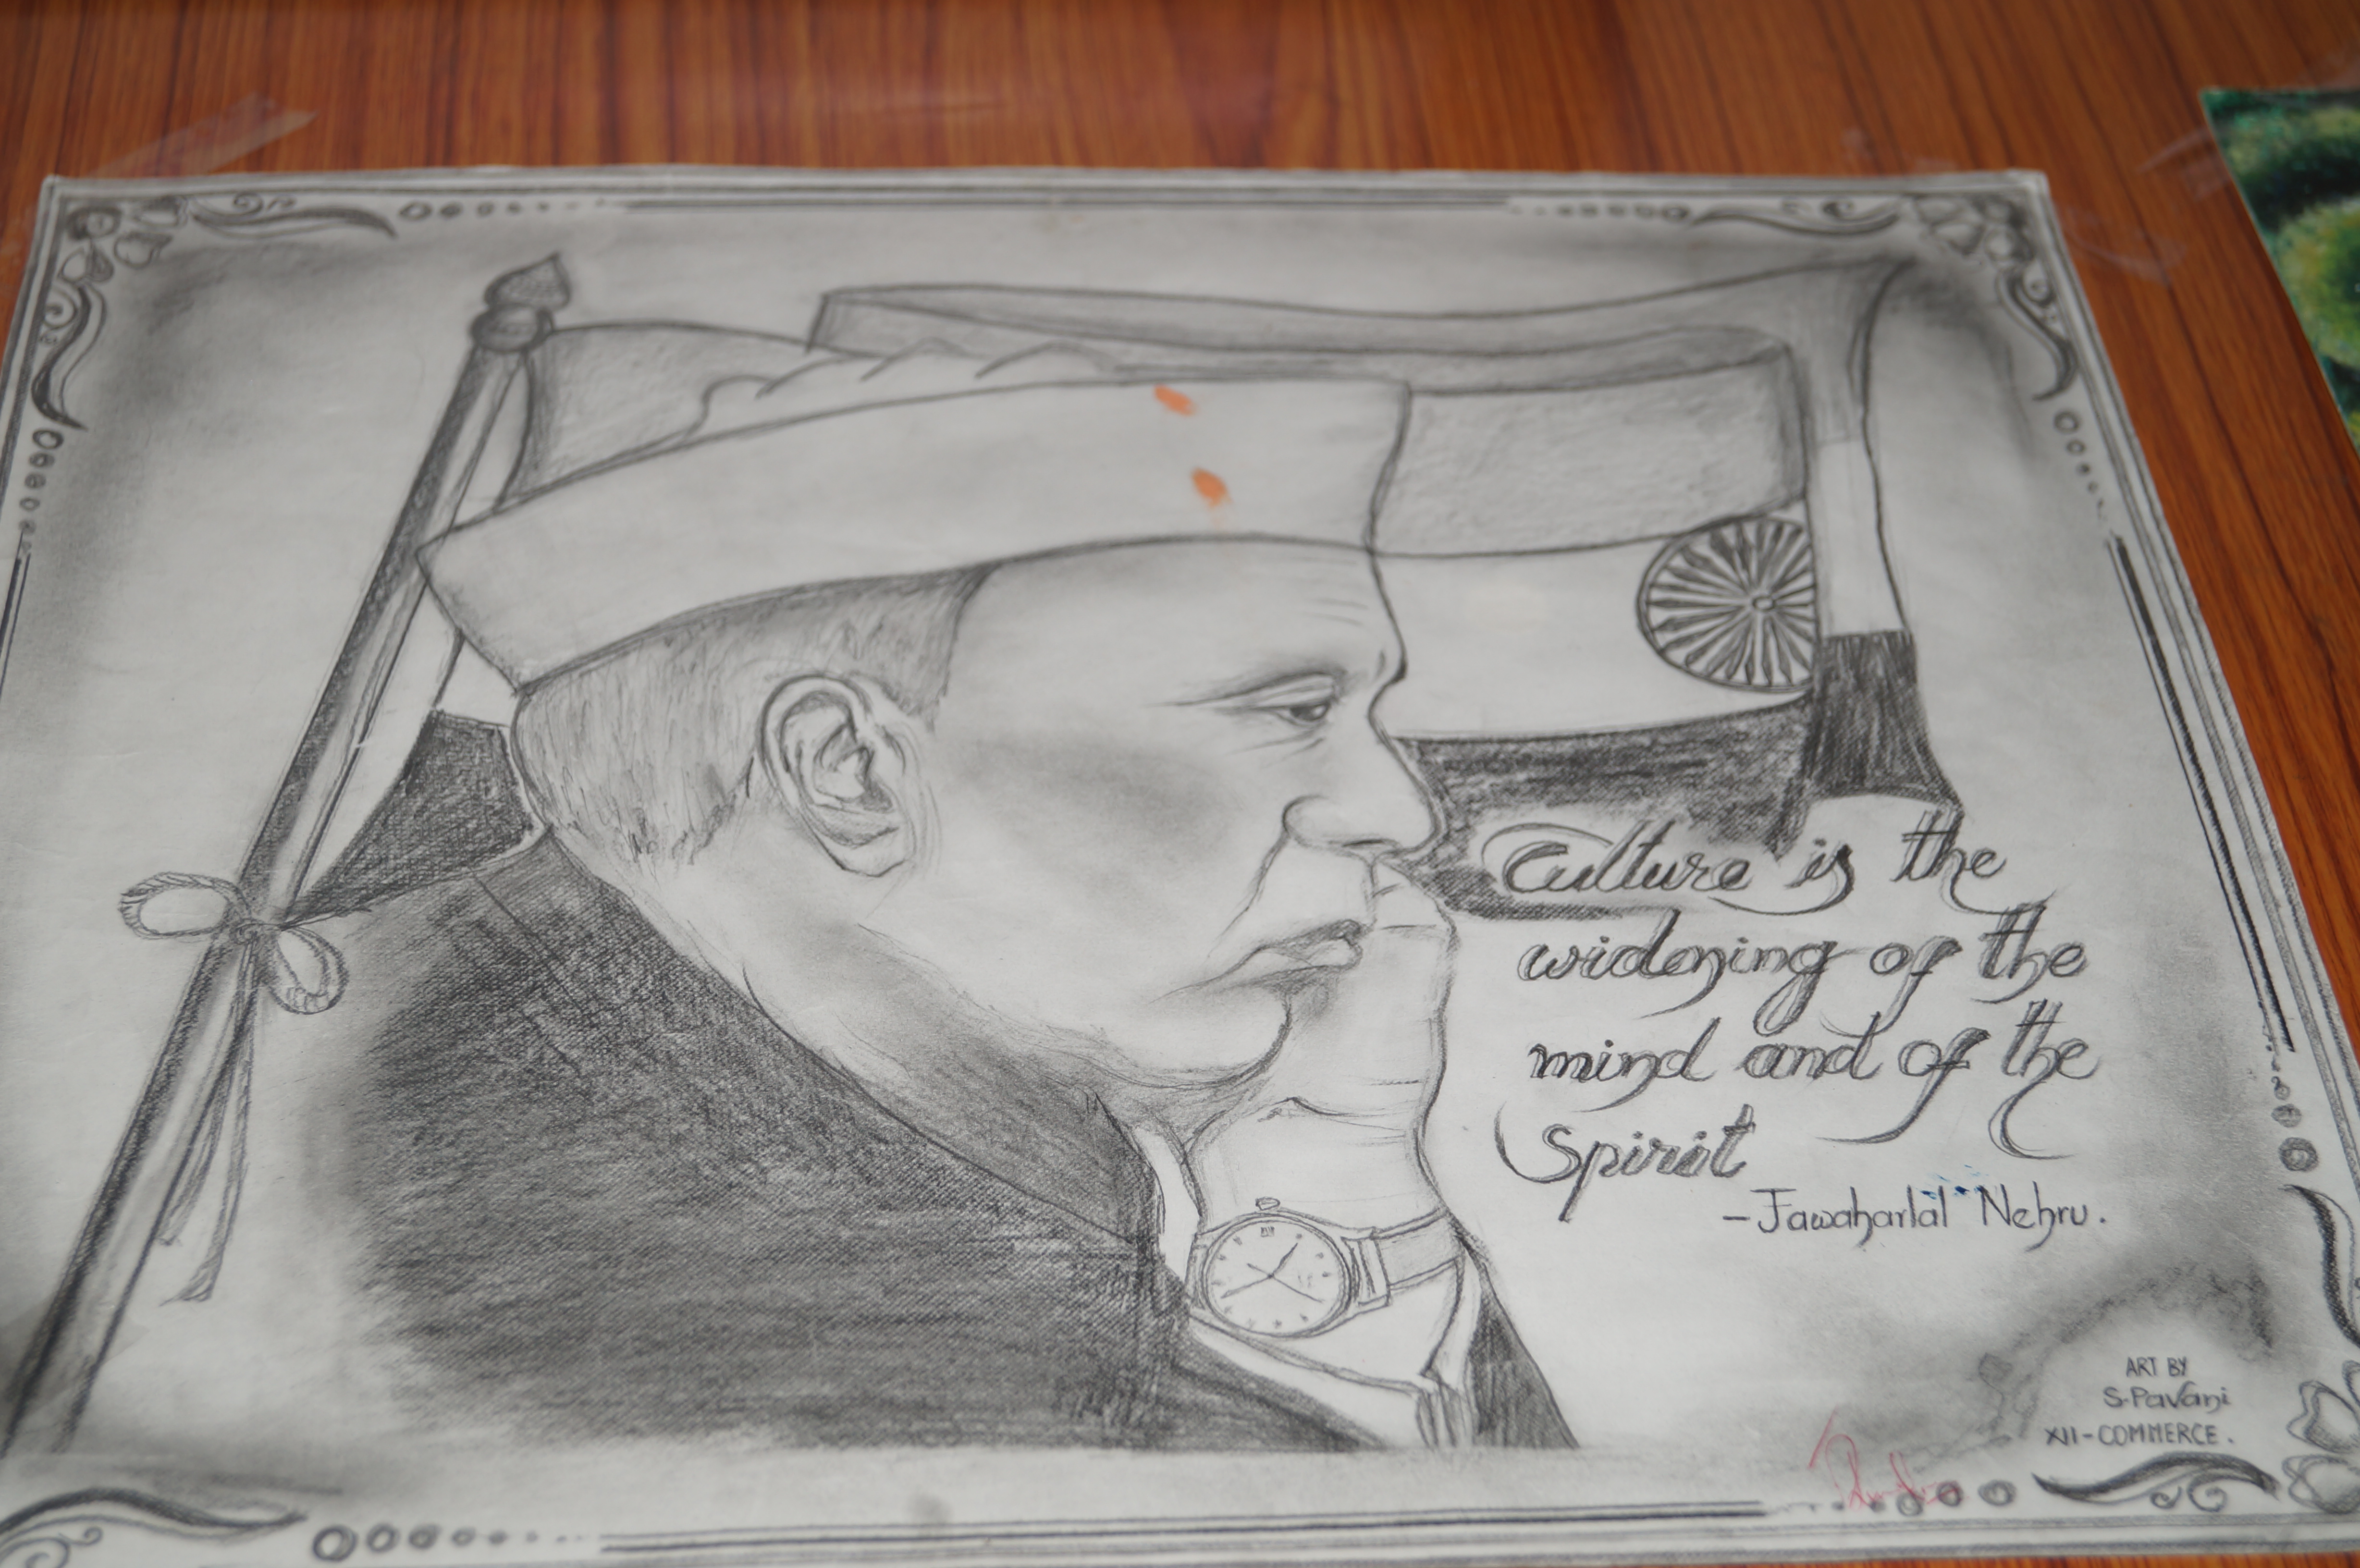 Culture is the
widening of the
mind and of the
spirit
- Jawaharlal Nehru.
ART BY
S.Pavani
XII-COMMERCE.